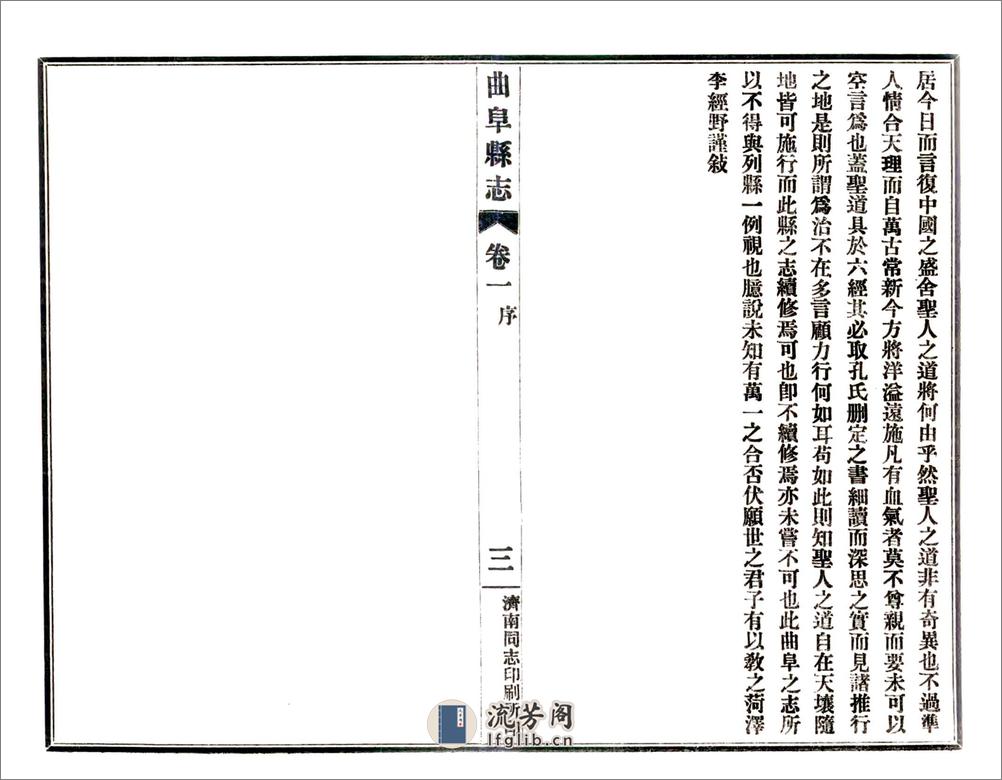 居今日而言復中國之盛舍聖人之道將何由乎然聖人之道非有奇異也不過準
人情合天理而自萬古常新今方將洋溢遠施凡有血氣者莫不尊親而要未可以
空言爲也蓋聖道具於六經其必取孔氏删定之書細讀而深思之實而見諸推行
之地是則所謂爲治不在多言顧力行何如耳苟如此則知聖人之道自在天壤隨
地皆可施行而此縣之志續修焉可也卽不續修焉亦未嘗不可也此曲阜之志所
以不得與列縣一例視也臆說未知有萬一之合否伏願世之君子有以敎之菏澤
李經野謹敍
曲阜縣志 卷一 序 三 濟南同志印刷所
流芳阁
lfglib.cn